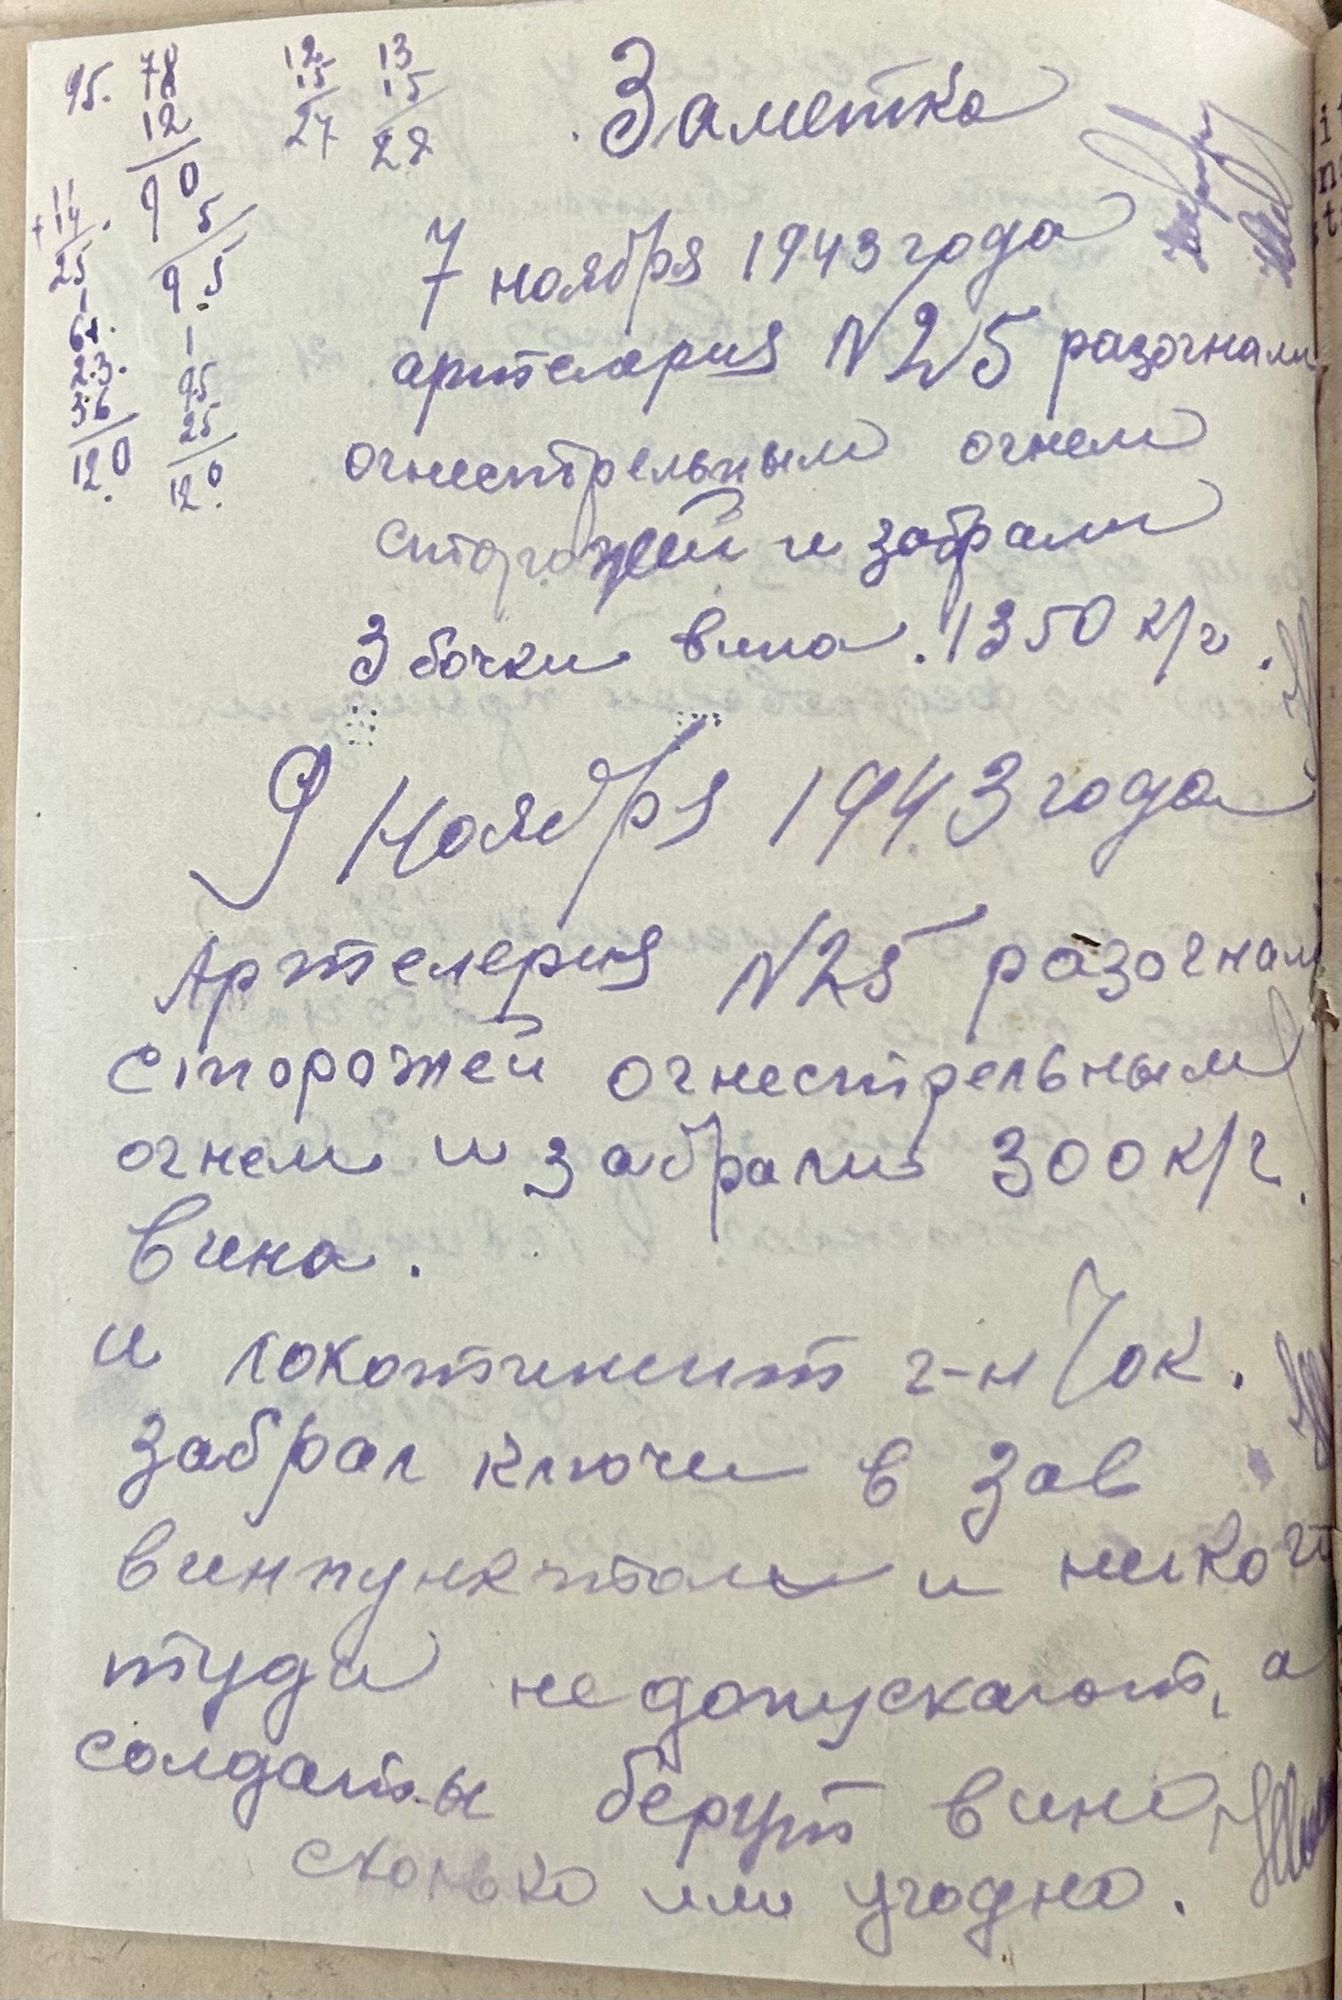 95. 78
12
90
5
95
12
15
27
13
15
28
+14
25
1
61.
23.
36
120
1
95
25
120.
Заметка
7 ноября 1943 года
артелерия N25 разогнали
огнестрельным огнем
сторожей и забрали
3 бочки вина. 1350 к/г.
9 Ноября 1943 года
Артелерия N25 разогнали
сторожей огнестрельным
огнем и забрали 300 к/г.
вина.
и локотинент г-н Чок.
забрал ключи в зав
винпунктом и никого
туда не допускают, а
солдаты берут вино,
сколько им угодно.